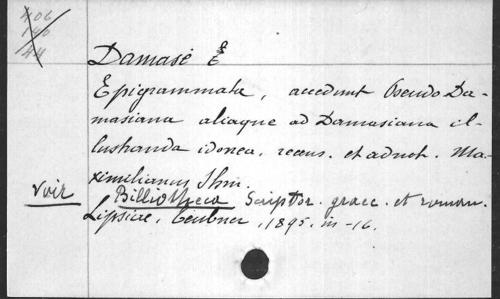 406
140
44
Damasé
Epigrammata, accedunt Pseudo Da-
masiana aliaque ad Damasiana il-
lustranda idonea, recens. et adnot. Ma-
ximilianus Ihm.
voir Billiotheca Scriptor. graec. et roman.
Lipsiae, Teubner, 1895. in-16.